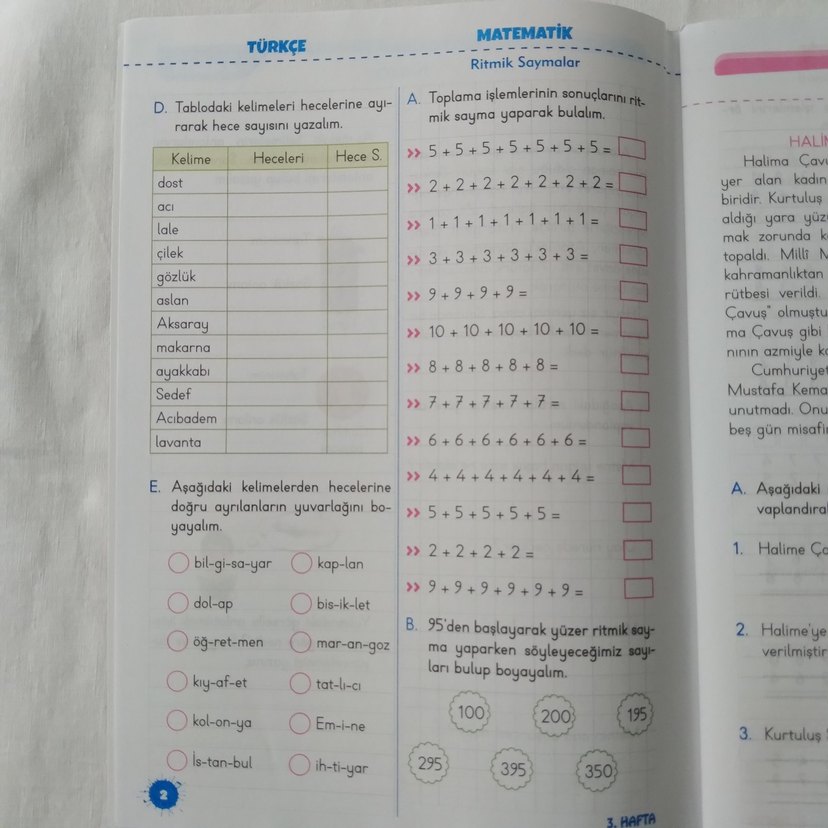 TÜRKÇE
D. Tablodaki kelimeleri hecelerine ayı-
rarak hece sayısını yazalım.
Kelime Heceleri Hece S.
dost
acı
lale
çilek
gözlük
aslan
Aksaray
makarna
ayakkabı
Sedef
Acıbadem
lavanta
E. Aşağıdaki kelimelerden hecelerine
doğru ayrılanların yuvarlağını bo-
yayalım.
bil-gi-sa-yar kap-lan
dol-ap bis-ik-let
öğ-ret-men mar-an-goz
kıy-af-et tat-lı-cı
kol-on-ya Em-i-ne
İs-tan-bul ih-ti-yar
2
MATEMATİK
Ritmik Saymalar
A. Toplama işlemlerinin sonuçlarını rit-
mik sayma yaparak bulalım.
5 + 5 + 5 + 5 + 5 + 5 + 5 =
2 + 2 + 2 + 2 + 2 + 2 + 2 =
1 + 1 + 1 + 1 + 1 + 1 + 1 =
3 + 3 + 3 + 3 + 3 + 3 =
9 + 9 + 9 + 9 =
10 + 10 + 10 + 10 + 10 =
8 + 8 + 8 + 8 + 8 =
7 + 7 + 7 + 7 + 7 =
6 + 6 + 6 + 6 + 6 + 6 =
4 + 4 + 4 + 4 + 4 + 4 + 4 =
5 + 5 + 5 + 5 + 5 =
2 + 2 + 2 + 2 =
9 + 9 + 9 + 9 + 9 + 9 =
B. 95'den başlayarak yüzer ritmik say-
ma yaparken söyleyeceğimiz sayı-
ları bulup boyayalım.
100 200 195
295 395 350
3. HAFTA
Halima
yer alan kadın
biridir. Kurtuluş
aldığı yara
mak zorunda
topaldı. Millî
kahramanlıktan
rütbesi verildi.
Çavuş" olmuştu
ma Çavuş gibi
nının azmiyle
Cumhuriyet
Mustafa Kema
unutmadı.
beş gün
A. Aşağıdaki
vaplandıra
1. Halime
2. Halime'ye
verilmiştir
3. Kurtuluş